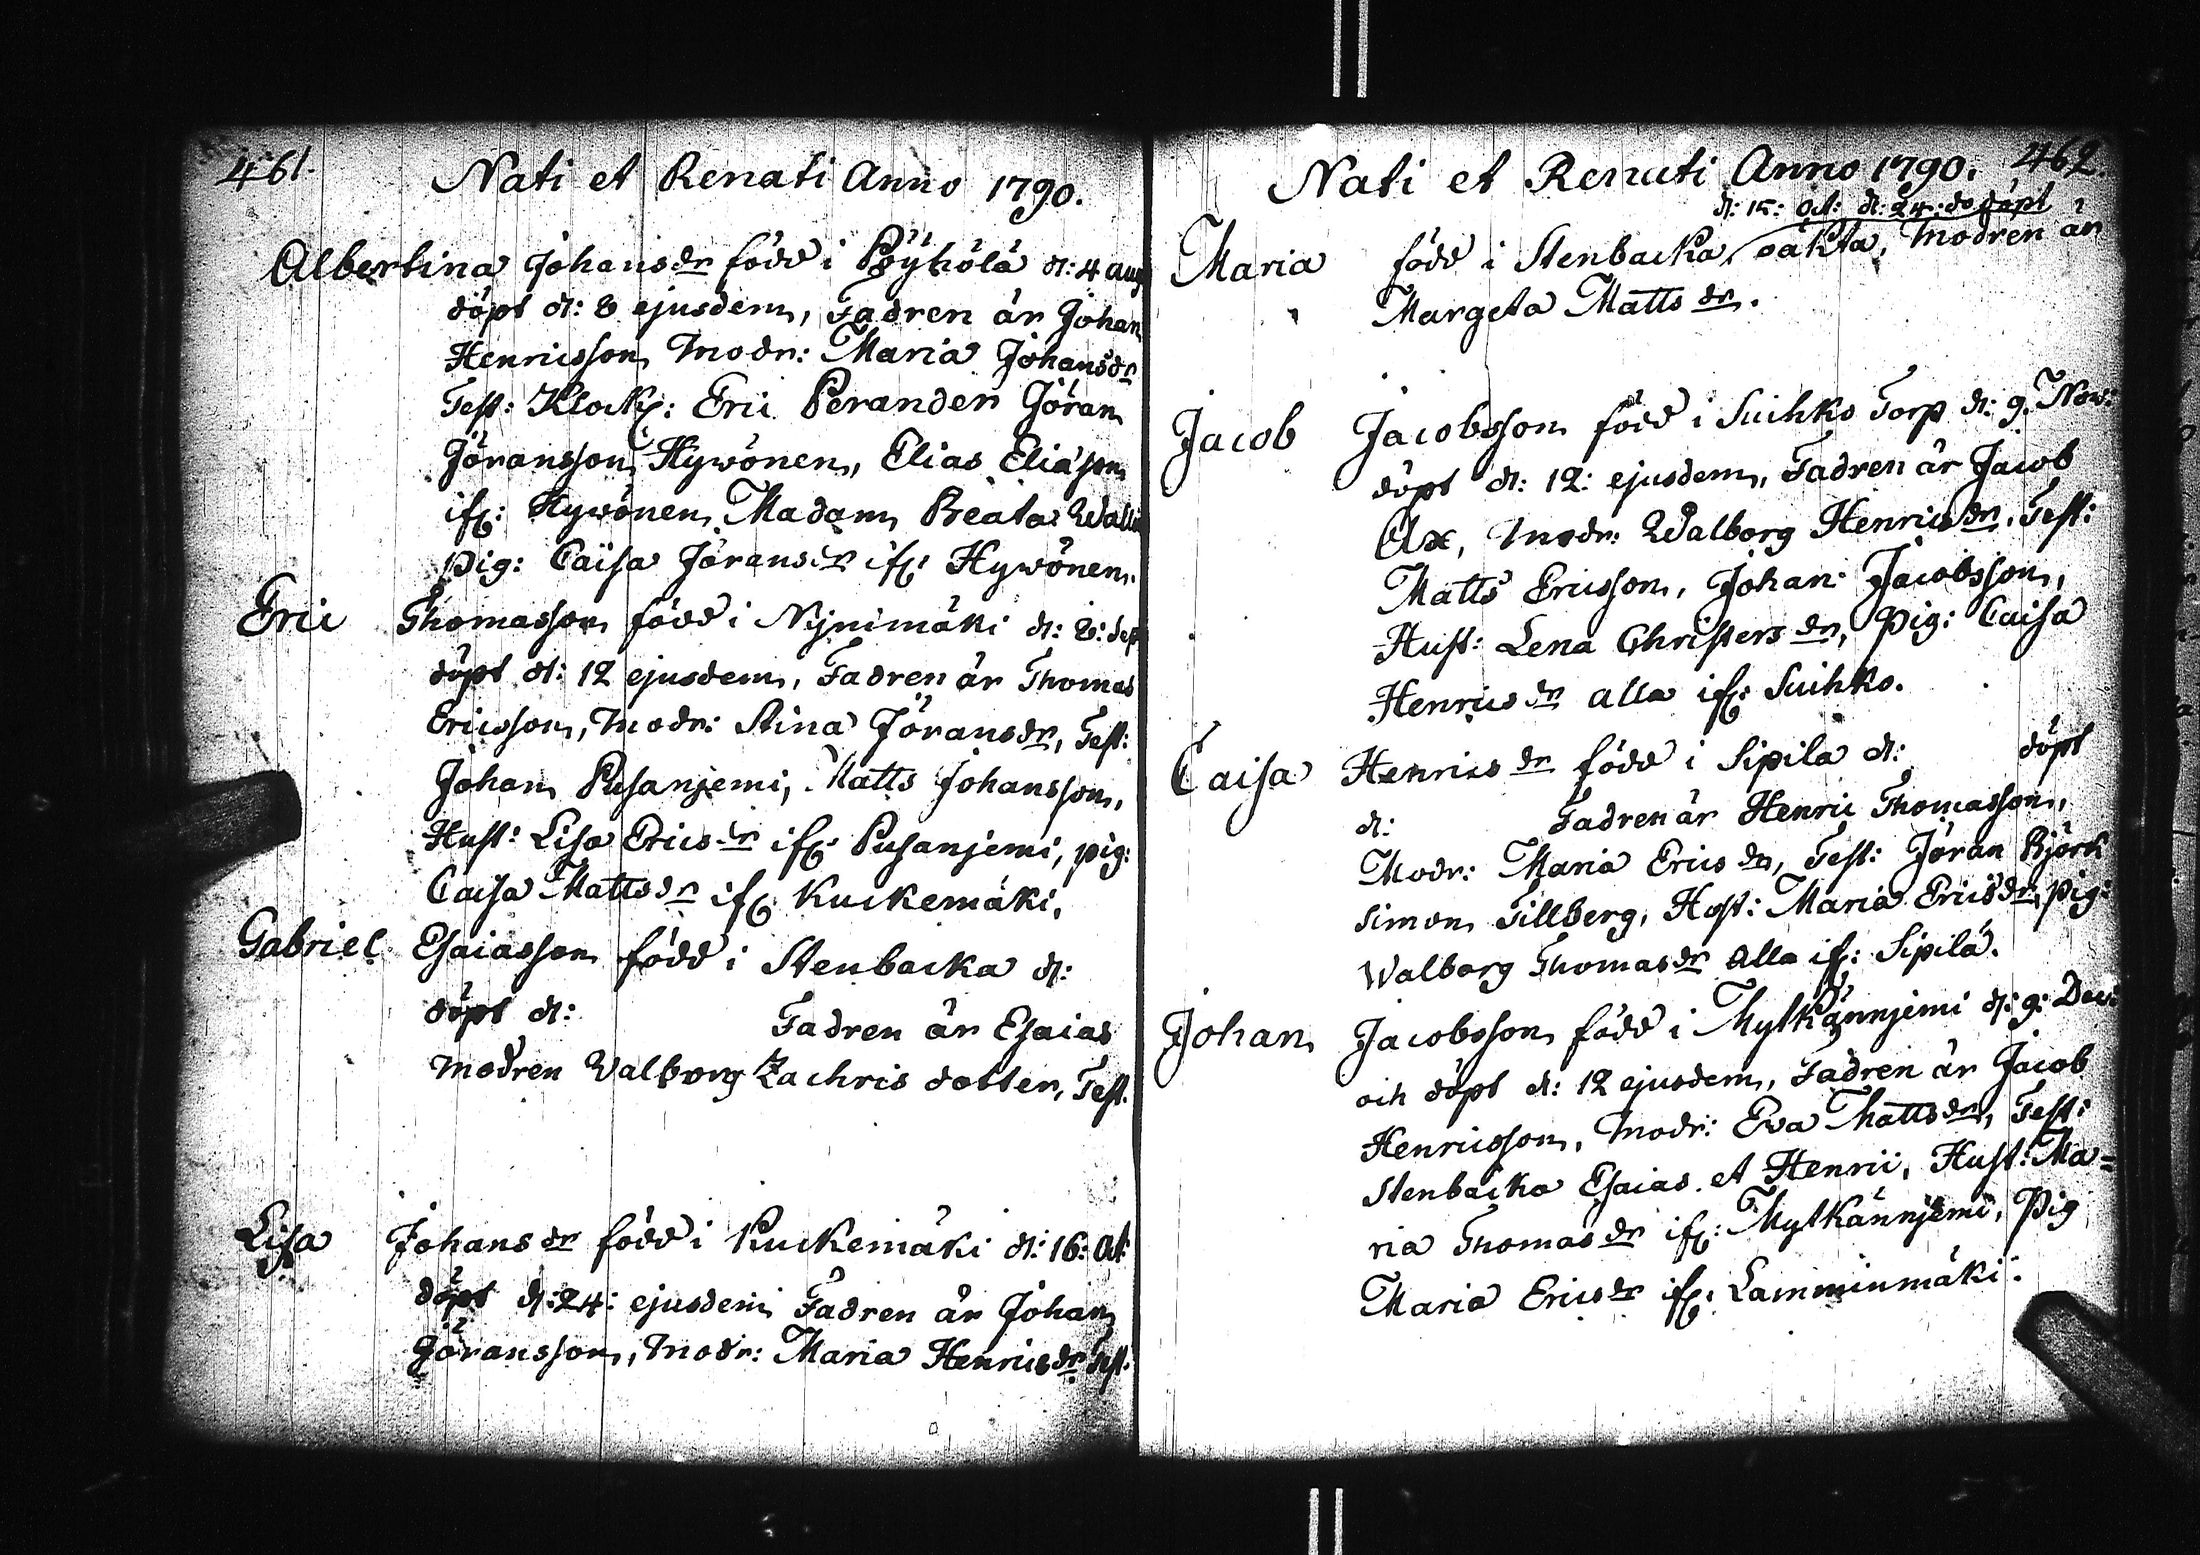 461.
Nati et Renati Anno 1790.
Albertina Johansdr född i Pöyhölä d: 4 Aug
döpt d: 8 ejusdem, Fadren är Johan
Henricsson, Modr: Maria Johansdr
Test: Klock: Eric Perander Jöran
Jöransson Hywönen, Elias Eliasson
ifr: Hywönen, Madam Beata Wallin
pig: Caisa Jöransdr ifr: Hywönen.
Eric Thomasson född i Nijnimäki d: 8: sep
döpt d: 12 ejusdem, Fadren är Thomas
Ericsson, Modr: Stina Jöransdr, Test:
Johan Pusanjemi, Matts Johansson,
Hust: Lisa Ericsdr ifr: Pusanjemi, pig:
Caisa Mattsdr ifr: Kuckemäki,
Gabriel Esaiasson född i Stenbacka d:
döpt d: Fadren är Esaias
Modren Walborg Zachris dotter, Test.
Lisa Johansdr född i Kuckemäki d: 16: Oct:
döpt d: 24: ejusdem Fadren är Johan
Jöransson, Modr: Maria Henricsdr Test.
462.
Nati et Renati Anno 1790.
d: 15: Oct: d: 24: do döpt
Maria född i Stenbacka, oäkta, Modren är
Margeta Mattsdr.
Jacob Jacobsson född i Suihko Torp d: 9. Nov:
döpt d: 12: ejusdem, Fadren är Jacob
Ax, Modr: Walborg Henricsdr, Test:
Matts Ericsson, Johan Jacobsson,
Hust: Lena Christersdr, Pig: Caisa
Henricsdr alla ifr: Suihko.
Caisa Henricsdr född i Sipila d: döpt
d: Fadren är Henric Thomasson,
Modr: Maria Ericsdr, Test: Jöran Björk
Simon Tillberg, Hust: Maria Ericsdr, pig:
Walborg Thomasdr alla ifr: Sipilä.
Johan Jacobsson född i Mylkännjemi d: 9: Dec:
och döpt d: 12 ejusdem, Fadren är Jacob
Henricsson, Modr: Eva Mattsdr, Test:
Stenbacka Esaias et Henric, Hust: Ma=
ria Thomasdr ifr: Mylkännjemi, Pig
Maria Ericsdr ifr: Lamminmäki.